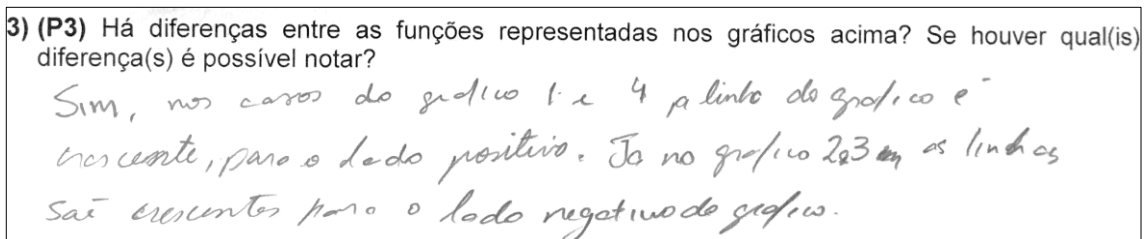 3) (P3) Há diferenças entre as funções representadas nos gráficos acima? Se houver qual(is)
diferença(s) é possível notar?
Sim, nos casos do grafico 1 e 4 a linha do grafico é
crescente, para o lado positivo. Ja no grafico 2e3 as linhas
saĩ crescentes para o lado negativo do grafico.